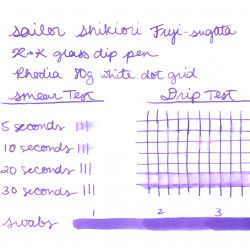 sailor shikiori Fuji-sugata
glass dip pen
Rhodia 80g white dot grid
smear Test Drip Test
5 seconds
10 seconds
20 seconds
30 seconds
swabs 1 2 3